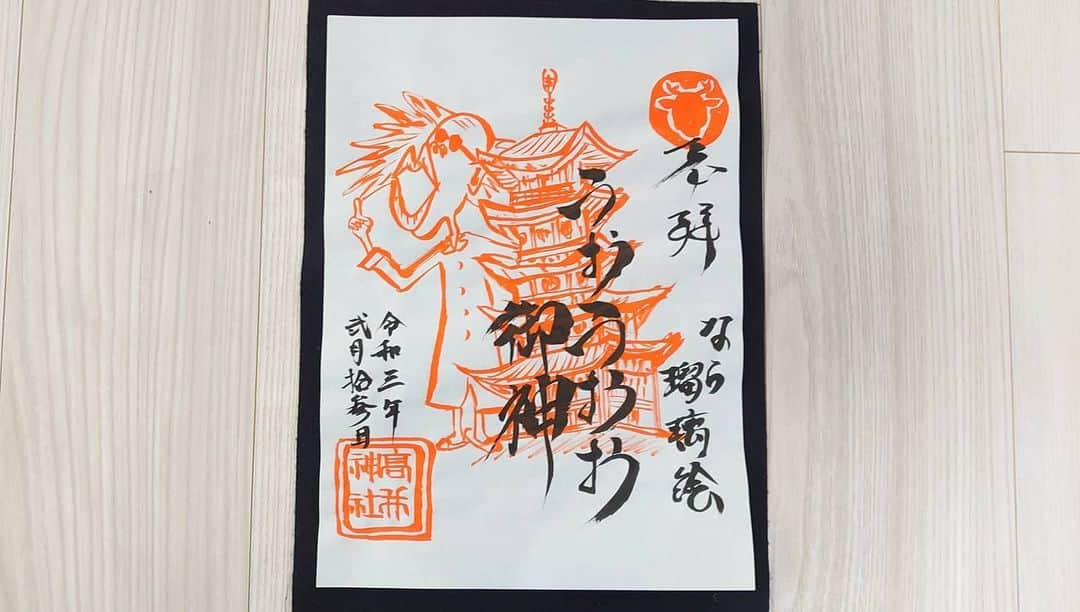 奉拝
なら瑠璃絵
うおうおお
御神
令和三年
弐月拾参日
神社